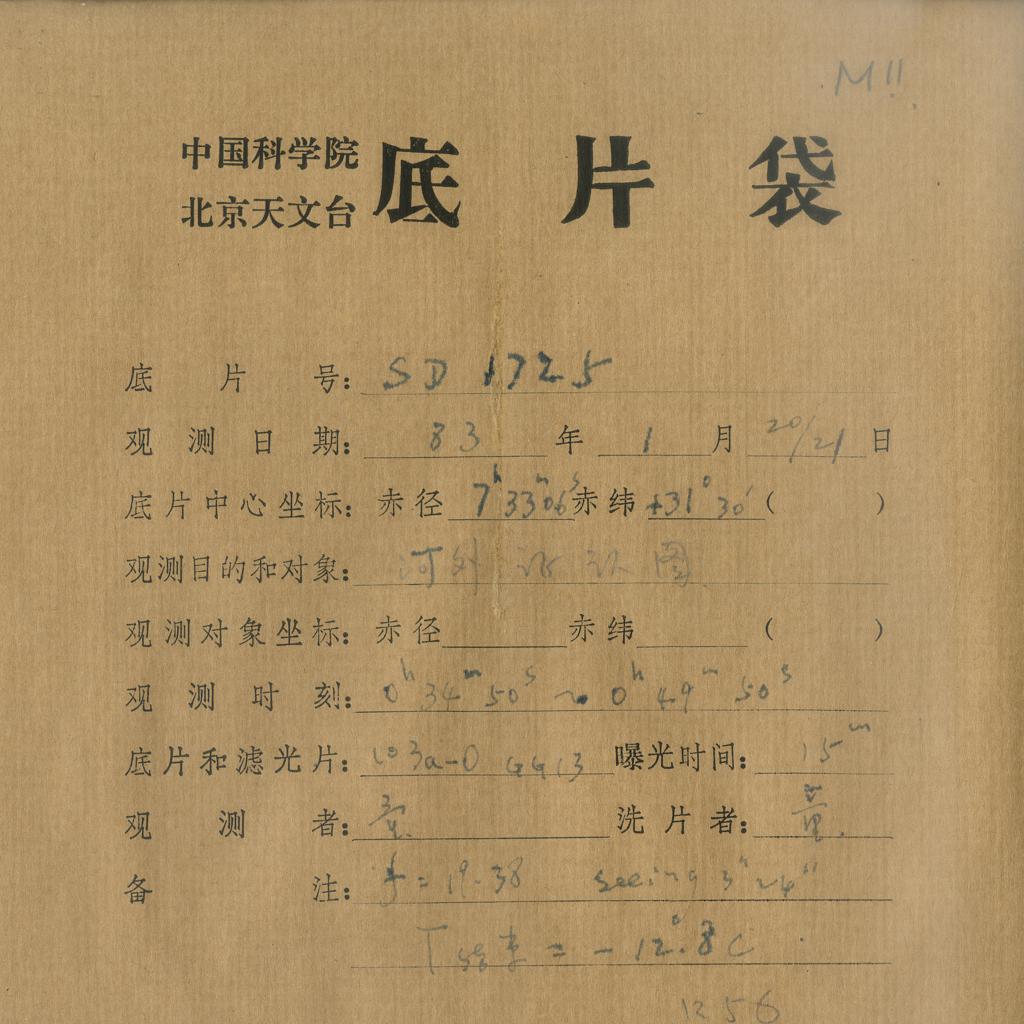 M !!
中国科学院
北京天文台
底片袋
底片号: SD 1725
观测日期: 83年 1月 20/21日
底片中心坐标: 赤径 7h33m06s 赤纬 +31°30′ ( )
观测目的和对象: 河外 证认图
观测对象坐标: 赤径 赤纬 ( )
观测时刻: 0h 34m 50s ~ 0h 49m 50s
底片和滤光片: 103a-O GG13 曝光时间: 15m
观测者: 洗片者:
备注: f = 19.38 seeing 3″~4″
T结束 = -12°.8C
1256